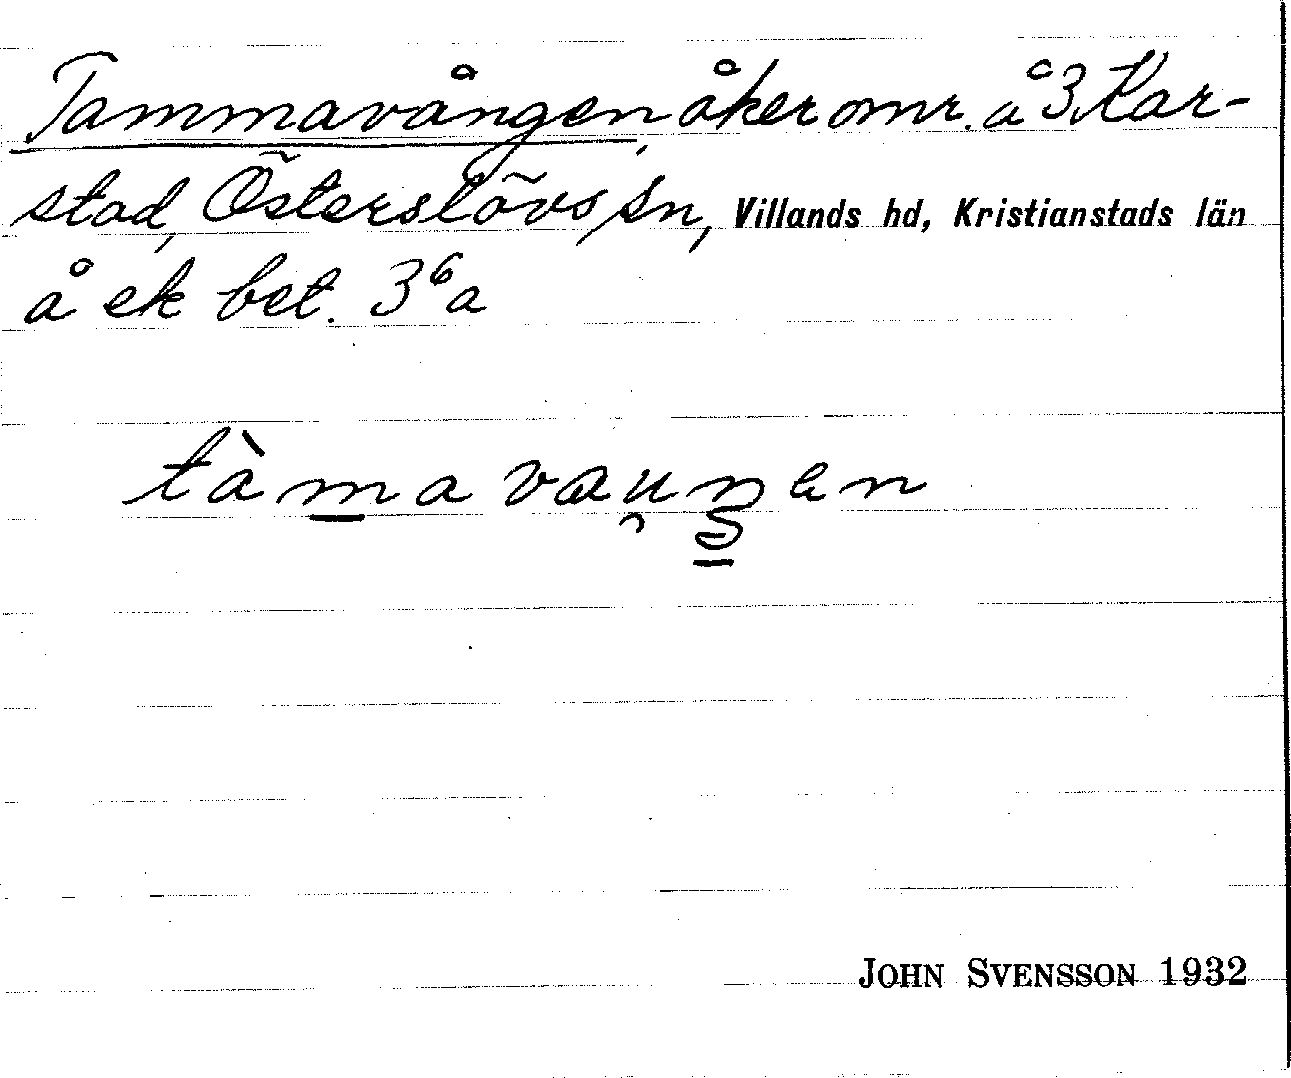 Tammavången, åker omr. å 3 Kar-
stad, Österslövs sn, Villands hd, Kristianstads län
å ek bet. 3⁶a
tàm̲avau̯ŋ̲en
JOHN SVENSSON 1932